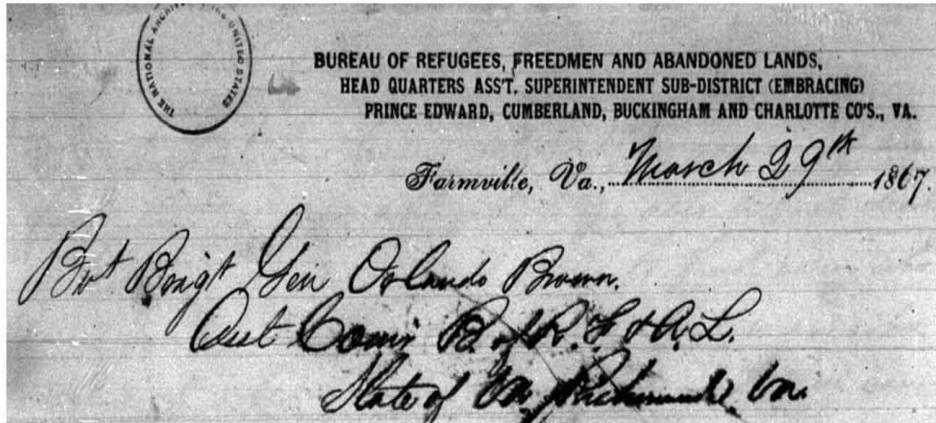 THE NATIONAL ARCHIVES UNITED STATES
BUREAU OF REFUGEES, FREEDMEN AND ABANDONED LANDS,
HEAD QUARTERS ASS'T. SUPERINTENDENT SUB-DISTRICT (EMBRACING)
PRINCE EDWARD, CUMBERLAND, BUCKINGHAM AND CHARLOTTE CO'S., VA.
Farmville, Va., March 29th 1867.
Bvt Brigt Gen Orlando Brown.
Asst Comr B. of R. F. & A. L.
State of Va Richmond Va.